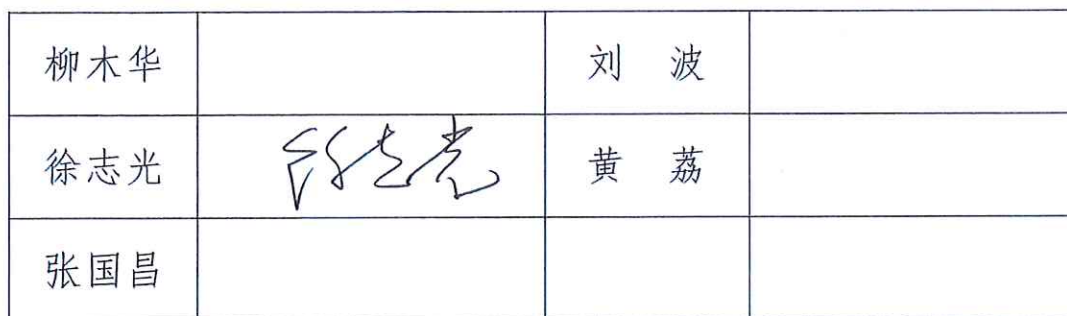 柳木华 刘 波
徐志光 徐志光 黄 荔
张国昌